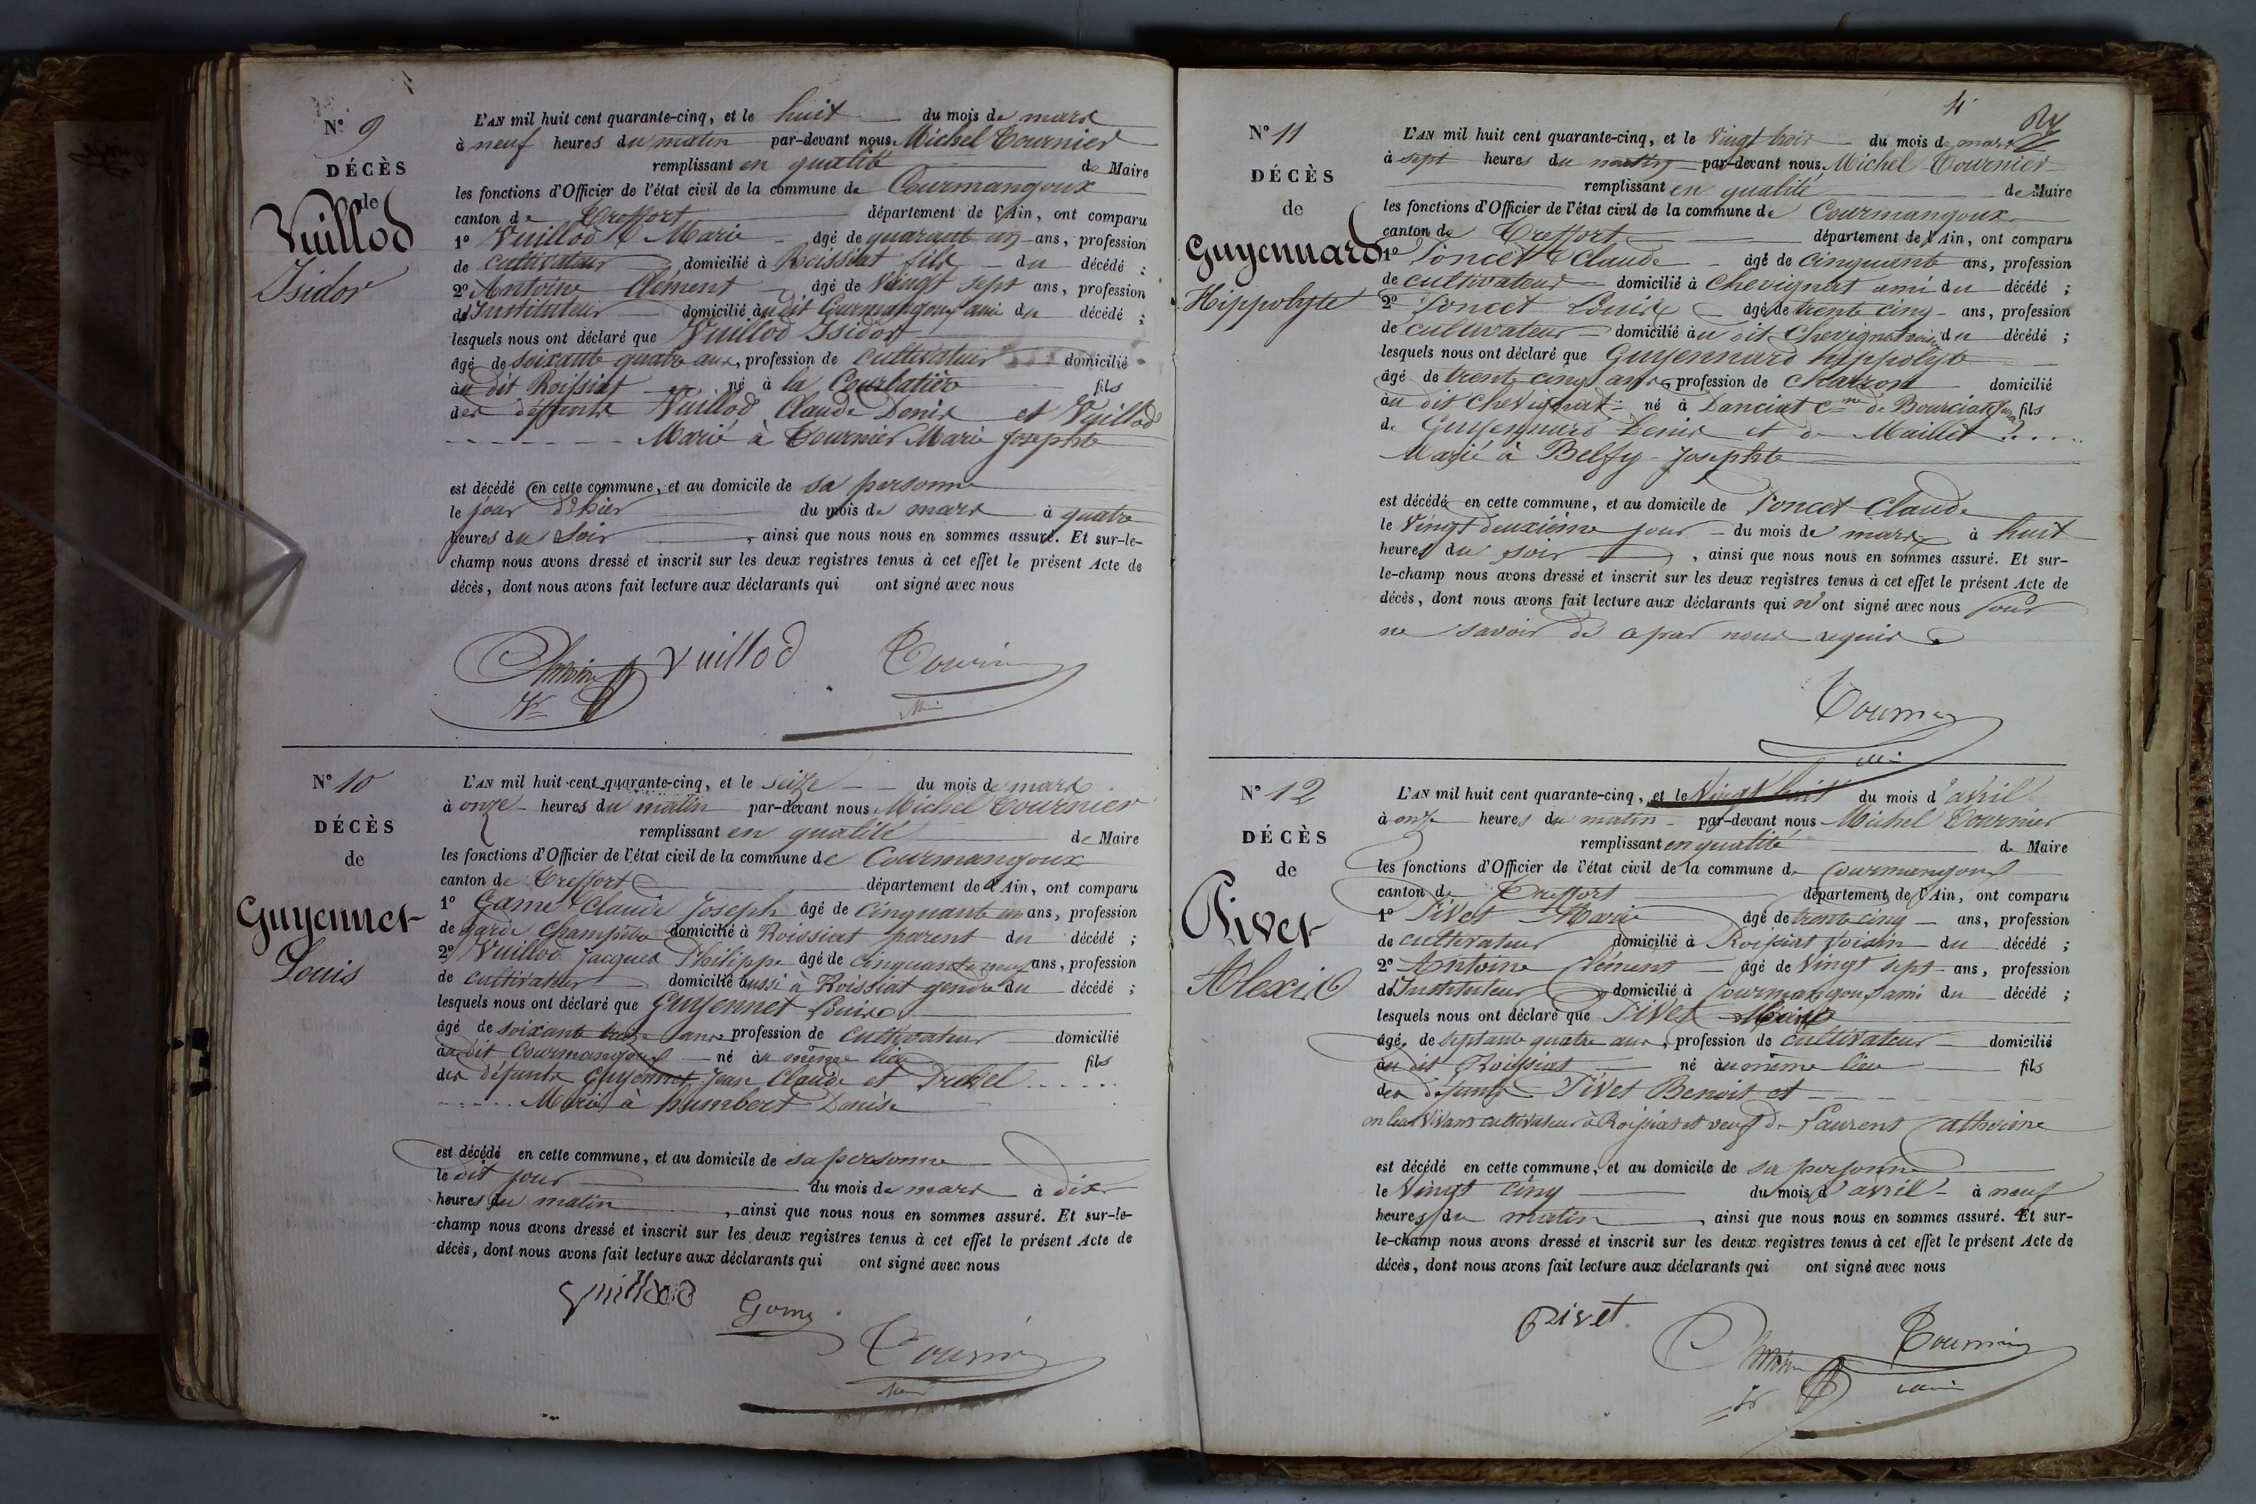 N° 9
DÉCÈS
de
Vuillod
Isidor
L'AN mil huit cent quarante-cinq, et le huit du mois de mars
à neuf heures du matin par-devant nous Michel Tournier
remplissant en qualité de Maire
les fonctions d'Officier de l'état civil de la commune de Courmangoux
canton de Treffort département de l'Ain, ont comparu
1° Vuillod Marie âgé de quarante un ans, profession
de cultivateur domicilié à Roissiat fils du décédé ;
2° Antoine Clément âgé de vingt sept ans, profession
d'Instituteur domicilié au dit Courmangoux ami du décédé ;
lesquels nous ont déclaré que Vuillod Isidor
âgé de soixante quatre ans, profession de cultivateur domicilié
au dit Roissiat né à la Courbatière fils
des défunts Vuillod Claude Denis et Vuillod
Marié à Tournier Marie Josephte
est décédé en cette commune, et au domicile de sa personne
le jour d'hier du mois de mars à quatre
heures du soir, ainsi que nous nous en sommes assuré. Et sur-le-
champ nous avons dressé et inscrit sur les deux registres tenus à cet effet le présent Acte de
décès, dont nous avons fait lecture aux déclarants qui ont signé avec nous
Antoine Vuillod Tournier
N° 10
DÉCÈS
de
Guyennet
Louis
L'AN mil huit cent quarante-cinq, et le seize du mois de mars
à onze heures du matin par-devant nous Michel Tournier
remplissant en qualité de Maire
les fonctions d'Officier de l'état civil de la commune de Courmangoux
canton de Treffort département de l'Ain, ont comparu
1° Game Claude Joseph âgé de cinquante un ans, profession
de garde champêtre domicilié à Roissiat parent du décédé ;
2° Vuillod Jacques Philippe âgé de cinquante neuf ans, profession
de cultivateur domicilié aussi à Roissiat gendre du décédé ;
lesquels nous ont déclaré que Guyennet Louis
âgé de soixante ans profession de cultivateur domicilié
au dit Courmangoux né au même lieu fils
des défunts Guyennet Jean Claude et Druhel
Marié à humbert Denise
est décédé en cette commune, et au domicile de sa personne
le dit jour du mois de mars à dix
heures du matin, ainsi que nous nous en sommes assuré. Et sur-le-
champ nous avons dressé et inscrit sur les deux registres tenus à cet effet le présent Acte de
décès, dont nous avons fait lecture aux déclarants qui ont signé avec nous
Vuillod Game
Tournier
N° 11
DÉCÈS
de
Guyennard
Hippolyte
L'AN mil huit cent quarante-cinq, et le vingt trois du mois de mars
à sept heures du matin par-devant nous Michel Tournier
remplissant en qualité de Maire
les fonctions d'Officier de l'état civil de la commune de Courmangoux
canton de Treffort département de l'Ain, ont comparu
1° Poncet Claude âgé de cinquante ans, profession
de cultivateur domicilié à Chevignat ami du décédé ;
2° Poncet Louis âgé de trente cinq ans, profession
de cultivateur domicilié au dit Chevignat du décédé ;
lesquels nous ont déclaré que Guyennard hyppolyte
âgé de trente cinq ans profession de charron domicilié
au dit Chevignat né à Danciat Cne de Bourciat Jura fils
de Guyennard Denis et de Maillet
Marié à Belfy Josephte
est décédé en cette commune, et au domicile de Poncet Claude
le vingt deuxième jour du mois de mars à huit
heures du soir, ainsi que nous nous en sommes assuré. Et sur-
le-champ nous avons dressé et inscrit sur les deux registres tenus à cet effet le présent Acte de
décès, dont nous avons fait lecture aux déclarants qui n'ont signé avec nous pour
ne savoir de ce par nous requis
Tournier
N° 12
DÉCÈS
de
Pivet
Alexis
L'AN mil huit cent quarante-cinq, et le vingt huit du mois d'avril
à onze heures du matin par-devant nous Michel Tournier
remplissant en qualité de Maire
les fonctions d'Officier de l'état civil de la commune de Courmangoux
canton de Treffort département de l'Ain, ont comparu
1° Pivet Marie âgé de trente cinq ans, profession
de cultivateur domicilié à Roissiat voisin du décédé ;
2° Antoine Clément âgé de vingt sept ans, profession
d'Instituteur domicilié à Courmangoux ami du décédé ;
lesquels nous ont déclaré que Pivet
âgé de septante quatre ans, profession de cultivateur domicilié
au dit Roissiat né au même lieu fils
des défunts Pivet Benoit et
en leur vivant cultivateur à Roissiat et veuf de Laurent Catherine
est décédé en cette commune, et au domicile de sa personne
le vingt cinq du mois d'avril à neuf
heures du matin, ainsi que nous nous en sommes assuré. Et sur-
le-champ nous avons dressé et inscrit sur les deux registres tenus à cet effet le présent Acte de
décès, dont nous avons fait lecture aux déclarants qui ont signé avec nous
Pivet
Antoine Tournier